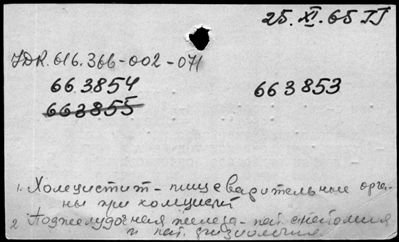 25. XI. 65 II
УДК. 616.366-002-071
663854 663853
663855
1. Холецистит - пищеварительные орга-
ны при холецист.
2. Поджелудочная железа - пат. анатомия
и пат. физиология